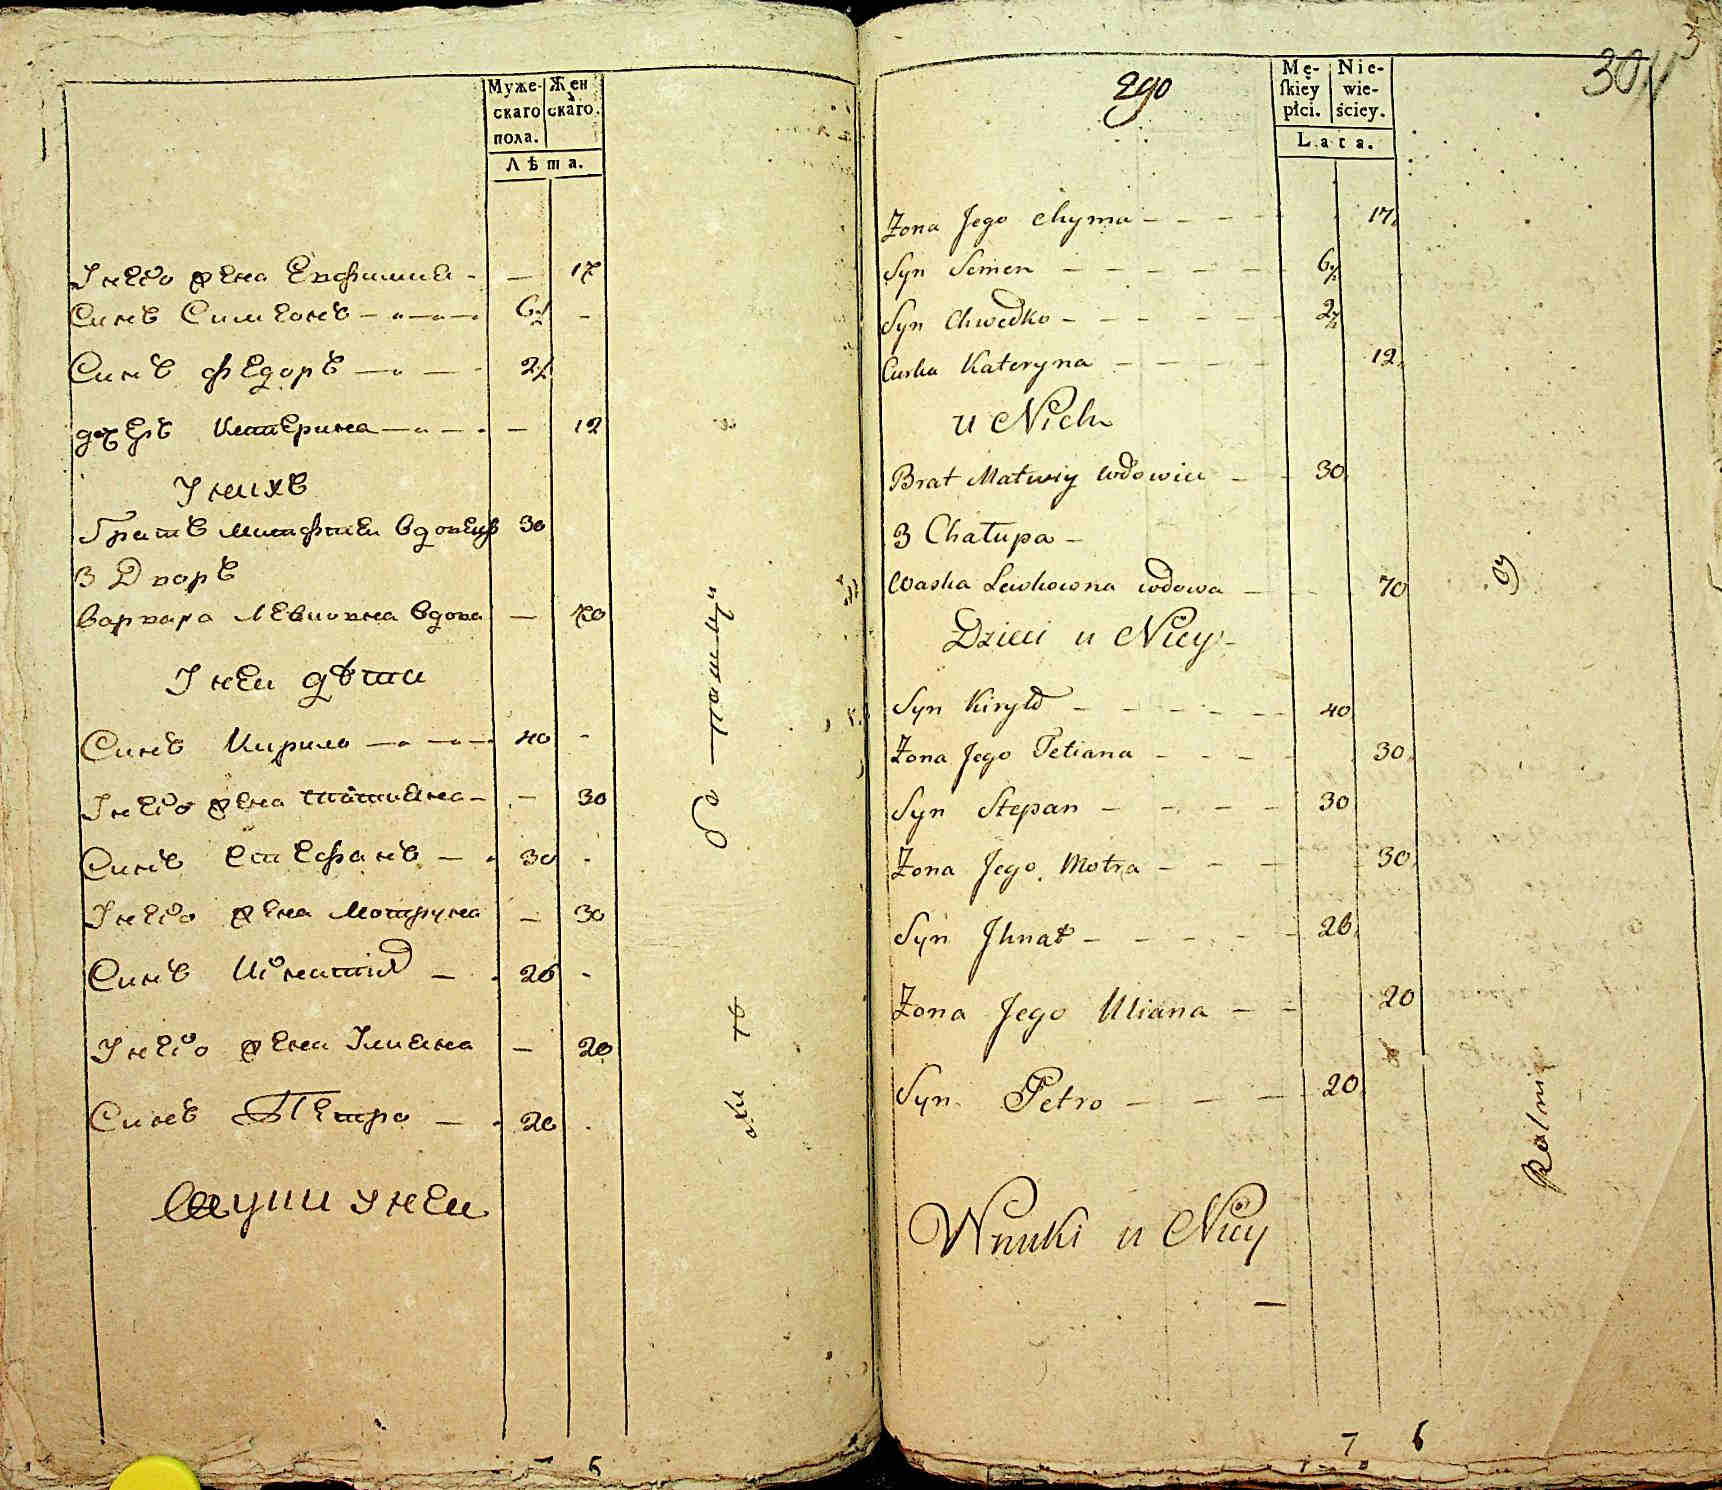 Муже-
скаго
пола.
Жен
скаго.
Лѣта.
У него жена Евфимиа - — 17
Синъ Симеонъ 6½ -
Синъ Федоръ 2½
дочерь Катерина — 12
У нихъ
Братъ Матфѣи вдовецъ 30
3 Дворъ
Варвара Левковна вдова — 70
У неи дѣти
Синъ Кирило 40 -
У него жена Татиана - — 30
Синъ Стефанъ 30 -
У него жена Мотруна — 30
Синъ Игнатій 26 -
У него жена Улиана — 20
Синъ Петро 20
Внуки у неи
7 6
его
Mę-
skiey
płci.
Nie-
wie-
ściey.
Lata.
30
3
Żona Jego Chyma 17
Syn Semen 6½
Syn Chwedko 2½
Curka Kateryna 12
u Nich
Brat Matwiy wdowiec 30
3 Chałupa
Waska Lewkowna wdowa 70
Dzieci u Niey
Syn Kiryło 40
Żona Jego Tetiana 30
Syn Stepan 30
Żona Jego Motra 30
Syn Ihnat 26
Żona Jego Uliana 20
Syn Petro 20
Wnuki u Niey
7 6